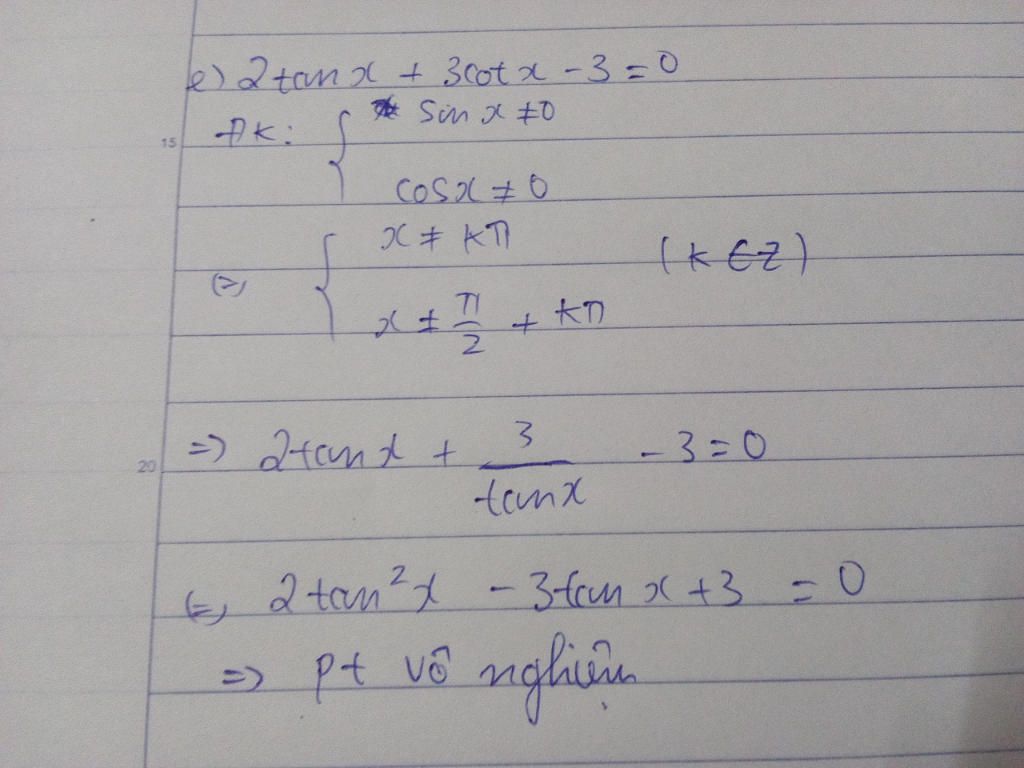 e) 2tan x + 3cot x - 3 = 0
15
ĐK: { sin x ≠ 0
cos x ≠ 0
<=> { x ≠ kπ
(k ∈ Z)
x ≠ π/2 + kπ
20
=> 2tan x + 3/tan x - 3 = 0
<=> 2tan²x - 3tan x + 3 = 0
=> pt vô nghiệm